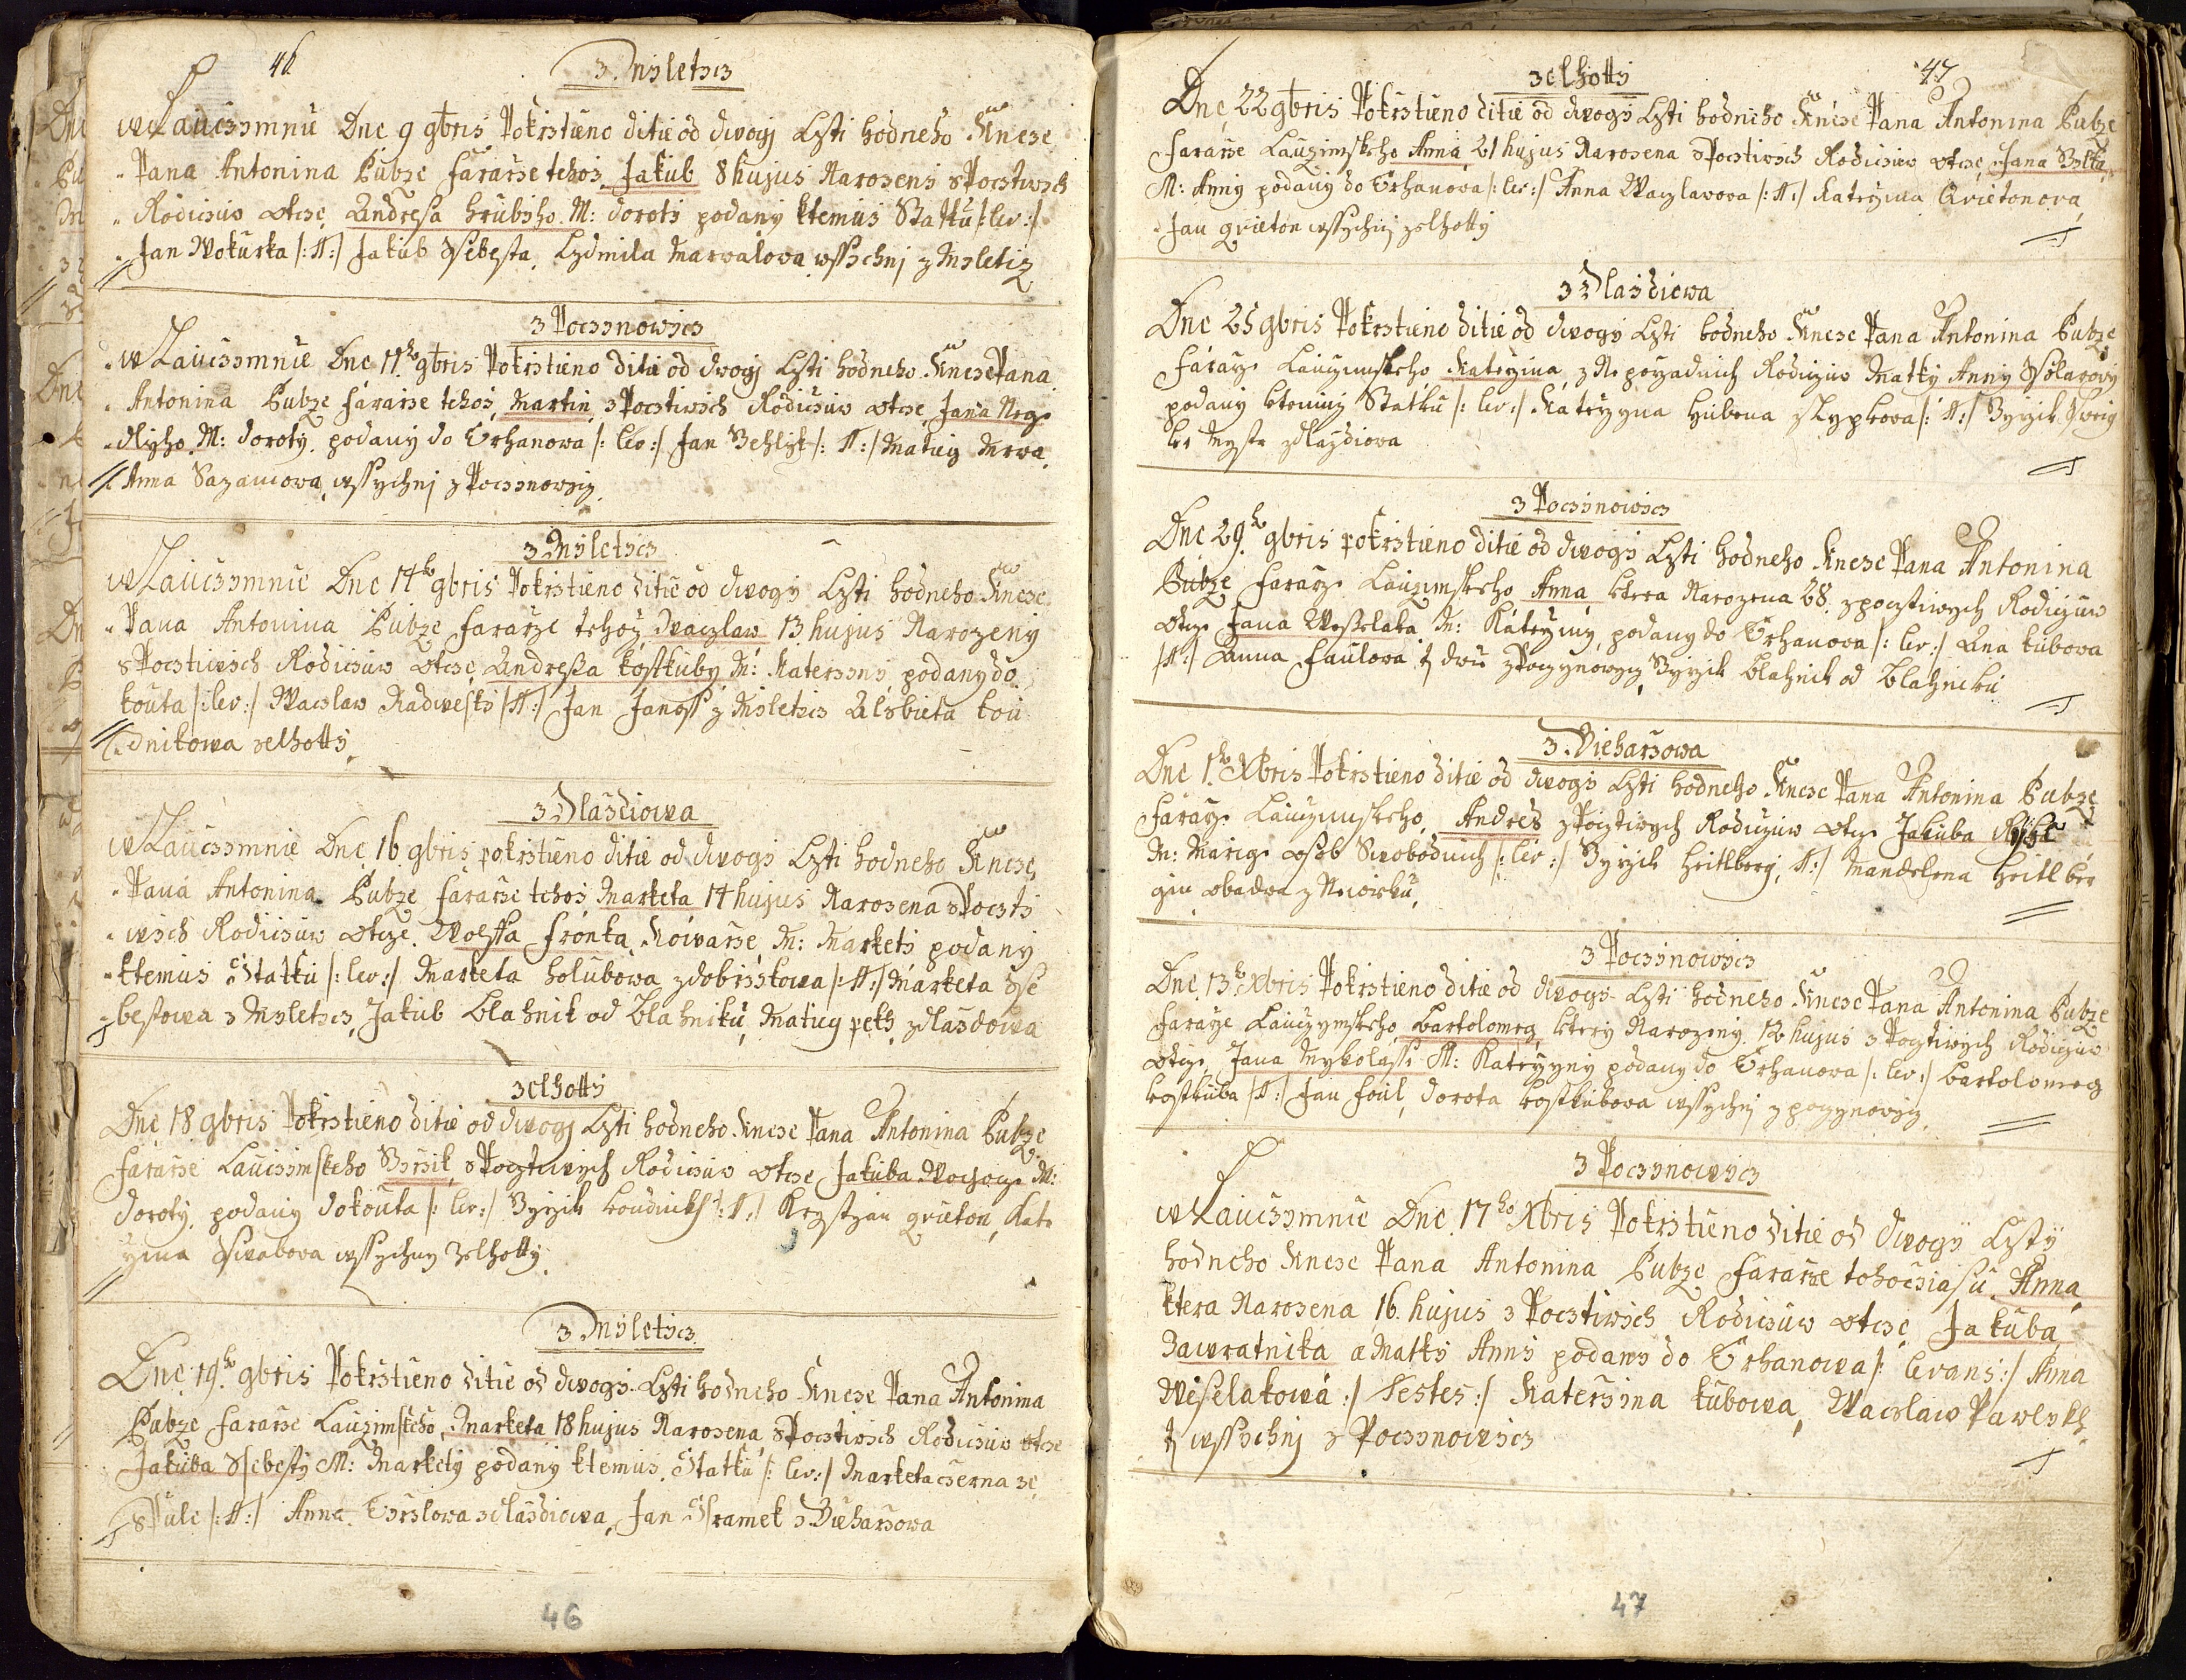 46
z Mÿletcÿcz
w Lauczÿmnie Dne 9 9bris Pokrstieno ditie od dwogj Czti hodneho Knieze
Pana Antonina Bubze fararze tehoz Jakub 8 hujus Narozenÿ z Pocztiwÿch
Rodiczüw otcze Andresa hrubÿho M: dorotÿ podanÿ ktemus Statkü /: lev :/
Jan Wokurka /: T: / Jakub Ssebesta, Lydmila Marwalowa wssÿchnj z Mÿletiz
z Poczÿnowicz
w Lauczÿmnie Dne 11ho 9bris Pokrstieno ditie od dwogj Czti hodneho Kneze Pana
Antonina Bubze fararze tehoz, Martin z Pocztiwÿch Rodiczüw otcze Jana Neg
dlÿho M: dorotÿ, podanÿ do Trhanowa /: lev :/ Jan Behlik /: T: / Matieg Mrwa,
Anna Sazamowa, wssÿchnj z Poczÿnowicz
z Mÿletcÿcz
w Lauczÿmnie Dne 14ho 9bris Pokrstieno ditie od dwogÿ Czti hodneho Kneze
Pana Antonina Bubze fararze tehoz Waczlaw 13 hujus Narozenÿ
z Pocztiwÿch Rodiczüw otcze Andressa kostkubÿ M: Katerzÿnÿ podanÿ do
kouta /: lev :/ Waczlaw Radweskÿ / T: / Jan Janoss z Mÿletcÿcz Alzbieta kou
dnikowa zelhottÿ
z Dlazdiowa
w Lauczÿmnie Dne 16 9bris pokrstieno ditie od dwogÿ Czti hodneho Kneze
Pana Antonina Bubze fararze tehoz Marketa 14 hujus Narozena z Poczti
wÿch Rodiczüw otcze Wolffa fronka Kowarze M: Marketÿ podanÿ
ktemus Statkü /: lev :/ Marketa holubowa z dobrzÿkowa /: T: / Marketa Sse
bestowa z Mÿletcÿcz, Jakub Blahnik od Blahnikü, Matieg peth, z dlazdowa
zelhottÿ
Dne 18 9bris Pokrstieno ditie od dwogj Czti hodneho Kneze Pana Antonina Bubze
fararze Lauczÿmskeho Bÿrzik z Pocztiwÿch Rodiczüw otcze Jakuba Wogacze M:
dorotÿ, podanÿ do kouta /: lev :/ Bÿrzik koudnikh /: T: / Krystyan grieton, Kate
rzyna Sswabowa wssÿchnÿ zelhottÿ
z Mÿletcÿcz
Dne 19ho 9bris Pokrstieno ditie od dwogÿ Czti hodneho Kneze Pana Antonina
Bubze fararze Lauczimskeho, Marketa 18 hujus Narozena z Pocztiwÿch Rodiczüw otcze
Jakuba Ssebestÿ M: Marketÿ podanÿ ktemus Statkü /: lev :/ Marketa czerna ze
Spule /: T: / Anna Tÿrslowa zdlazdiowa, Jan Sramek z Vieharzowa
46
47
zelhottÿ
Dne 22 9bris Pokrstieno ditie od dwogÿ Czti hodneho Kneze Pana Antonina Bubze
fararze Lauczimskeho Anna 21 hujus Narozena z Pocztiwÿch Rodiczüw otcze, Jana Volka,
M: Anny podanÿ do Trhanowa /: lev :/ Anna Waczlawowa /: T: / Katerzyna Grietonowa,
Jan grieton wssÿchnj zelhottÿ
z Dlazdiowa
Dne 25 9bris Pokrstieno ditie od dwogÿ Czti hodneho Kneze Pana Antonina Bubze
fararze Lauczimskeho Katerzyna, z Nepozadnich Rodiczüw Matky Anny Ssolarowÿ
podanÿ ktemuz Statkü /: lev :/ Katerzyna Hubena z Lypkowa /: T: / Byrzik Sweig
ler Mystr z dlazdiowa
z Poczÿnowicz
Dne 29ho 9bris pokrstieno ditie od dwogÿ Czti hodneho Kneze Pana Antonina
Bubze fararze Lauczimskeho Anna ktera Narozena 28. z pocztiwych Rodiczuw
otcze Jana Weselaka M: Katerzyny podany do Trhanowa /: lev :/ Ana kubowa
/ T: / Anna faulowa tj dwie z Poczynowycz Byrzik blahnik od blahniku
z Vieharzowa
Dne 1ho Xbris Pokrstieno ditie od dwogÿ Czti hodneho Kneze Pana Antonina Bubze
fararze Lauczimskeho, Andres z Pocztiwych Rodiczuw otcze Jakuba
M: Marige osob Swobodnich /: lev :/ Byrzik heitlberg, T: / Mandelena heitlber
gin obadwa z Neuwirku,
z Poczÿnowicz
Dne 13ho Xbris Pokrstieno ditie od dwogÿ Czti hodneho Kneze Pana Antonina Bubze
fararze Lauczymskeho bartolomeg, kterÿ Narozenÿ 12 hujus z Pocztiwych Rodiczuw
otcze, Jana Mykolasse M: Katerzyny podany do Trhanowa /: lev :/ bartolomeg
kostkuba / T: / Jan foul, dorota kostkubowa wssychnj z poczynowycz
z Poczÿnowicz
w Lauczÿmnie Dne 17ho Xbris Pokrstieno ditie od dwogÿ Cztÿ
hodneho Kneze Pana Antonina Bubze fararze tohocziasu, Anna
ktera Narozena 16 hujus z Pocztiwÿch Rodiczüw otcze Jakuba
Zawratnika a Matkÿ Annÿ podanÿ do Trhanowa /: levans :/ Anna
Weselakowá :/ Testes :/ Katerzina kubowa, Waczlaw Pawlikh
tj wssÿchnj z Poczÿnowicz
47